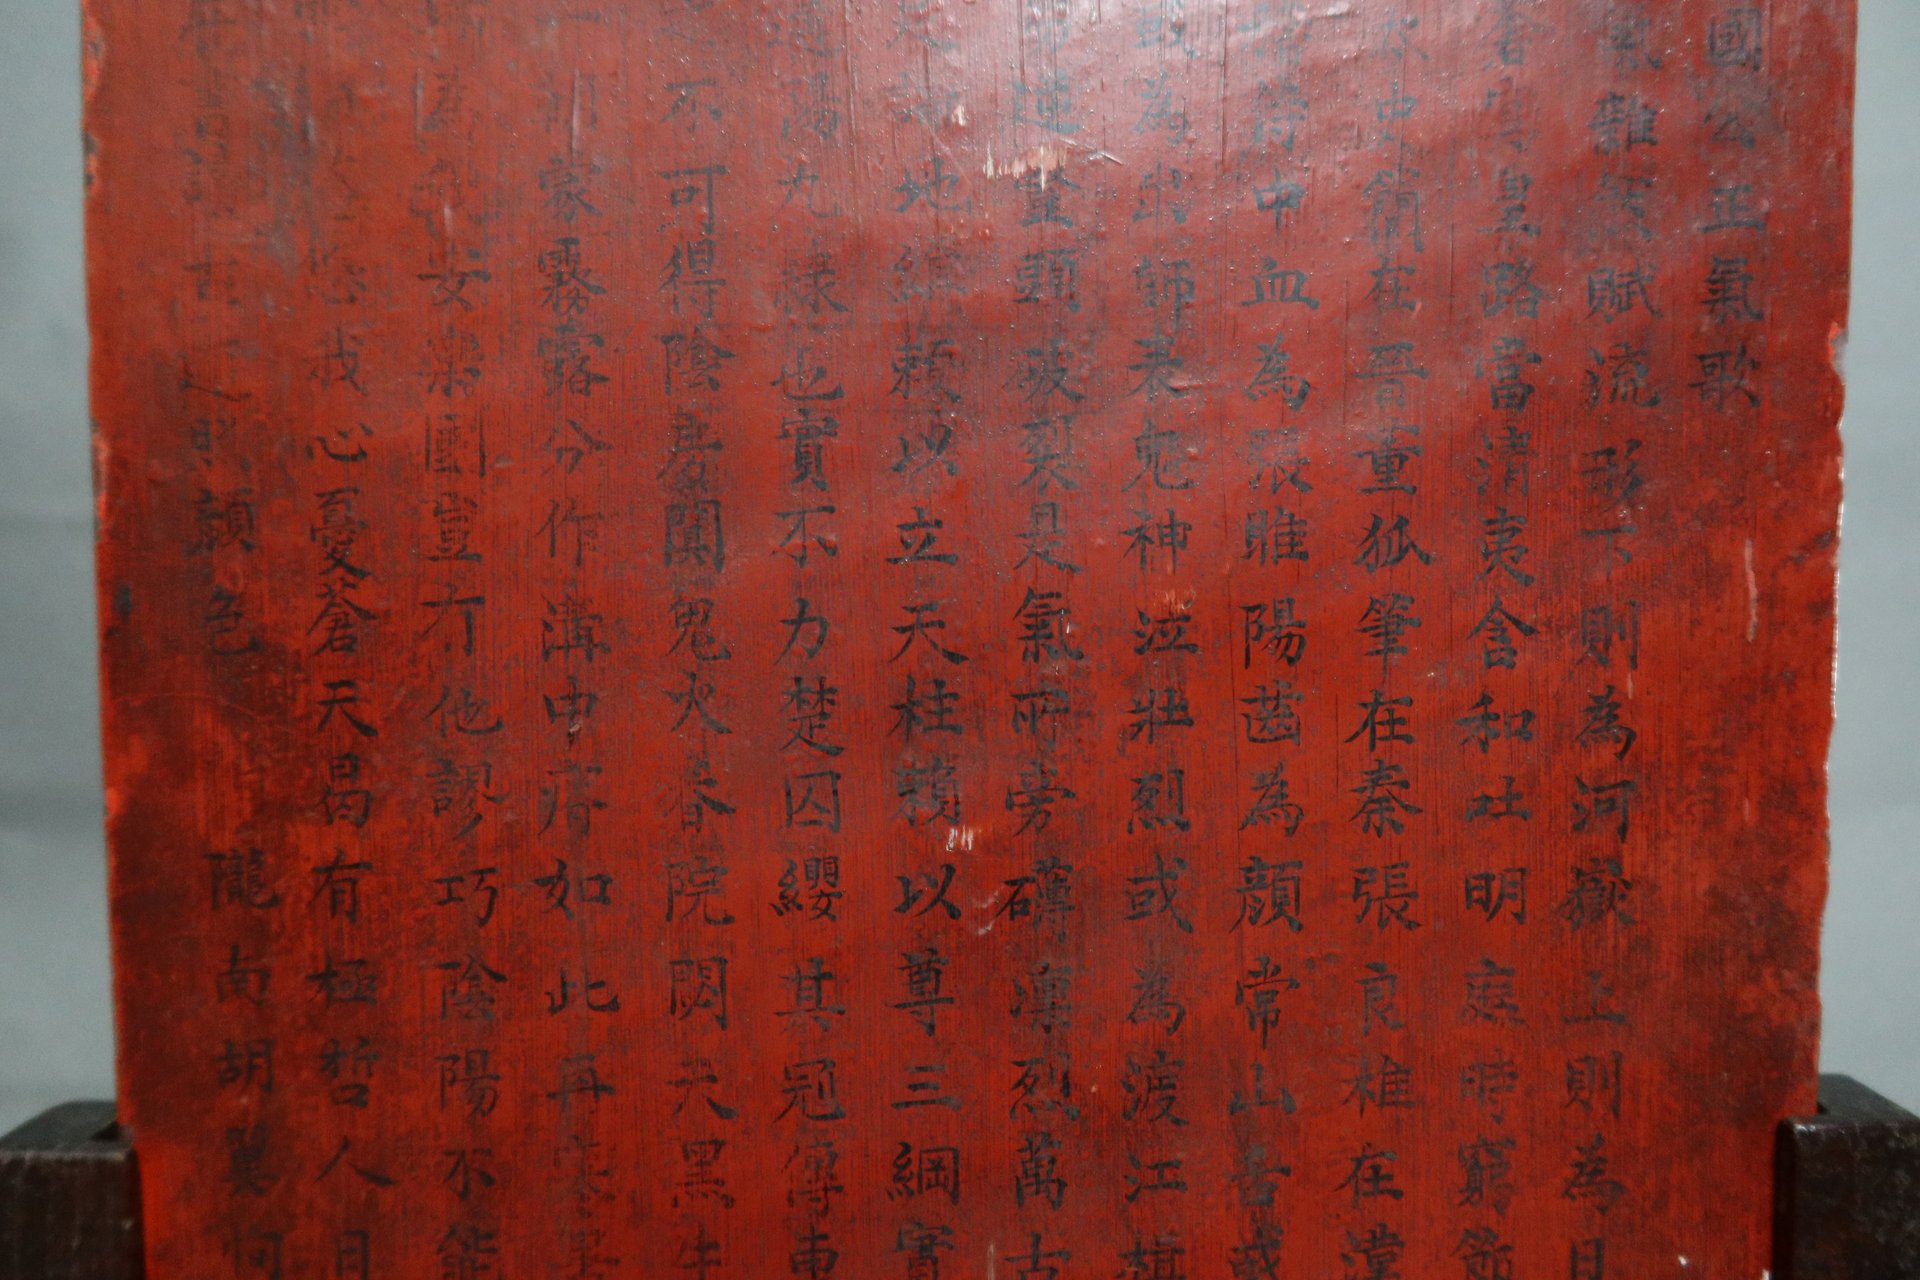 國公正氣歌
氣雜然賦流形下則為河嶽上則為日
皇路當清夷含和吐明庭時窮節
簡在晉董狐筆在秦張良椎在漢
侍中血為張睢陽齒為顏常山舌或
或為出師表鬼神泣壯烈或為渡江楫
逆豎頭破裂是氣所旁礴凜烈萬古
地維賴以立天柱賴以尊三綱實
遘陽九隸也實不力楚囚纓其冠傳車
不可得陰房闃鬼火春院閟天黑牛
一朝蒙霧露分作溝中瘠如此再寒暑
為我安樂國豈有他謬巧陰陽不能
悠悠我心憂蒼天曷有極哲人日
顏色 隴南胡